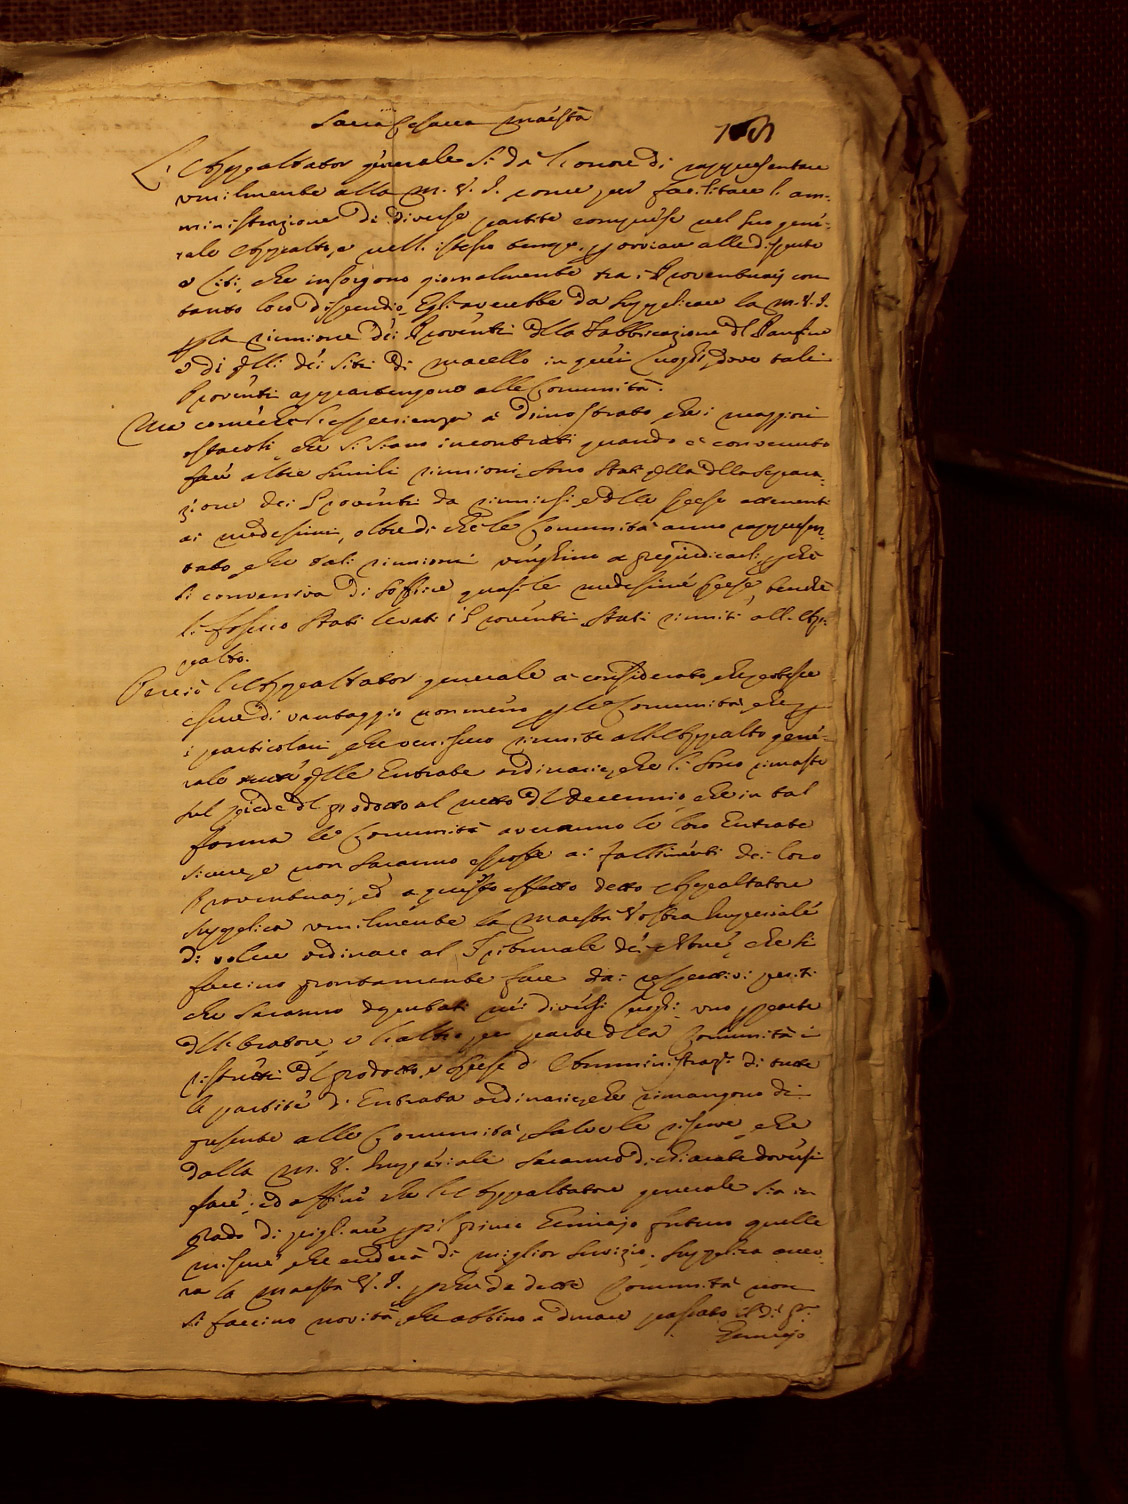 Sacra Cesarea Maestà
L'Appaltator generale si dà l'onore di rappresentare
umilmente alla M. V. I. come per facilitare l'am-
ministrazione di diverse partite comprese nel suo gene-
rale Appalto, e nell'istesso tempo ovviare alle dispute
e liti, che insorgono giornalmente tra i Proventuarj con
tanto loro dispendio, Egli averebbe da supplicare la M. V. I.
p la riunione dei Proventi dlla Fabbricazione dl Panfino
e di qlli dei siti di macello in quei luoghi, dove tali
Proventi appartengono alle Comunità.
Ma comechè l'esperienza à dimostrato, che i maggiori
ostacoli, che si siano incontrati quando è convenuto
far altre simili riunioni, sono stati qlla dlla separa-
zione dei Proventi da riunirsi, e dlle spese attenenti
ai medesimi, oltre di che le Comunità anno rappresen-
tato, che tali riunioni venghino a pregiudicarli, p che
li conveniva di soffrire quasi le medesime spese, benchè
li fossero stati levati i Proventi stati riuniti all'Ap-
palto.
Perciò l'Appaltator generale à considerato, che potesse
essere di vantaggio non meno p le Comunità, che p
i particolari, che venissero riunite all'Appalto gene-
rale tutte qlle Entrate ordinarie, che li sono rimaste
sul piede dl prodotto al netto dl decennio, che in tal
forma le Comunità averanno le loro Entrate
sicure, e non saranno esposte ai fallimenti dei loro
Proventuarj, ed a questo effetto detto Appaltatore
supplica umilmente la Maestà Vostra Imperiale
di volere ordinare al Tribunale dei che si
faccino prontamente fare dai respettivi periti
che saranno deputati nei diversi luoghi, uno p parte
e l'altro per parte dlla Comunità i
ristretti dl prodotto, e spese d'Amministraz.e di tutte
le partite d'Entrata ordinarie, che rimangono di
presente alle Comunità, salve le riserve, che
dalla M. V. Imperiale saranno dichiarate doversi
fare; ed affine che l'Appaltatore generale sia in
grado di pigliare p il primo Gennajo futuro quelle
misure, che crederà di miglior servizio, supplica anco-
ra la Maestà V. I. p che da dette Comunità non
si faccino novità, che abbino a durare passato il dì p.mo
Gennajo